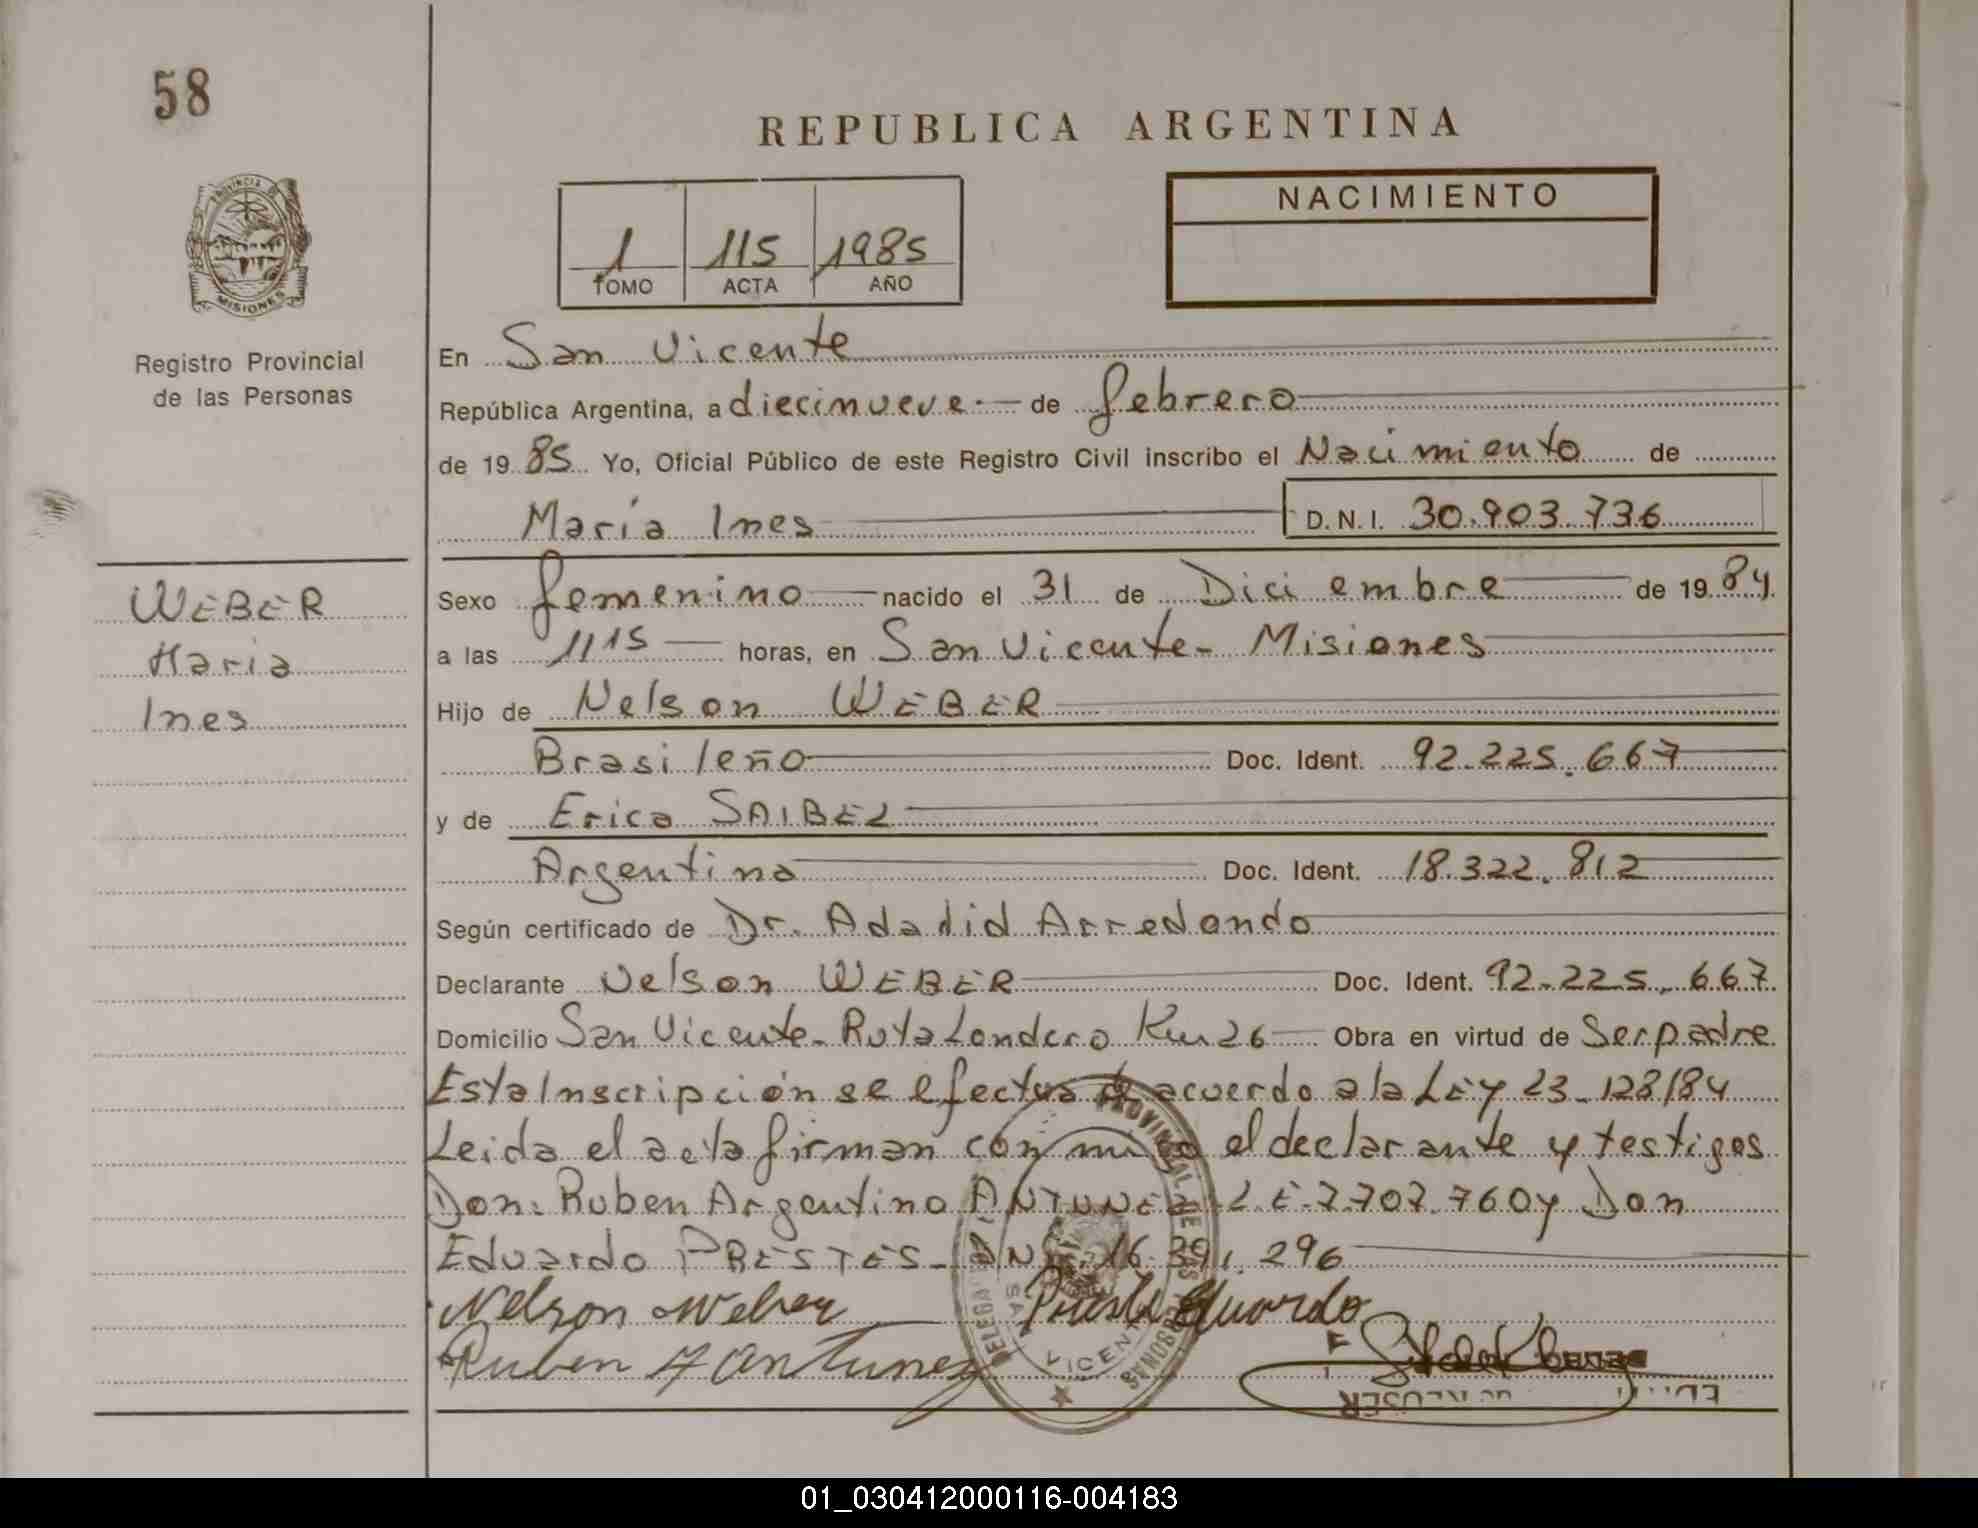 58
REPUBLICA ARGENTINA
PROVINCIA DE
MISIONES
Registro Provincial
de las Personas
1 115 1985
TOMO ACTA AÑO
NACIMIENTO
En San Vicente
República Argentina, a diecinueve de febrero
de 19 85 Yo, Oficial Público de este Registro Civil inscribo el Nacimiento de
María Ines D.N.I. 30.903.736
WEBER
Maria
Ines
Sexo femenino nacido el 31 de Diciembre de 19 84
a las 11 15 horas, en San Vicente - Misiones
Hijo de Nelson WEBER
Brasileño Doc. Ident. 92.225.667
y de Erica SAIBEL
Argentina Doc. Ident. 18.322.812
Según certificado de Dr. Adadid Arredondo
Declarante Nelson WEBER Doc. Ident. 92.225.667
Domicilio San Vicente - Ruta Londero Km 26 Obra en virtud de Ser padre
Esta Inscripción se efectua de acuerdo a la LEY 23.128/84
Leida el acta firman conmigo el declarante y testigos
Don: Ruben Argentino ANTUNEZ L.E. 7.707.760 y Don
Eduardo PRESTES - DNI. 16.391.296
Nelson Weber Eduardo
Ruben A Antunez
PROVINCIAL DE LAS PERSONAS
SAN VICENTE
01_030412000116-004183